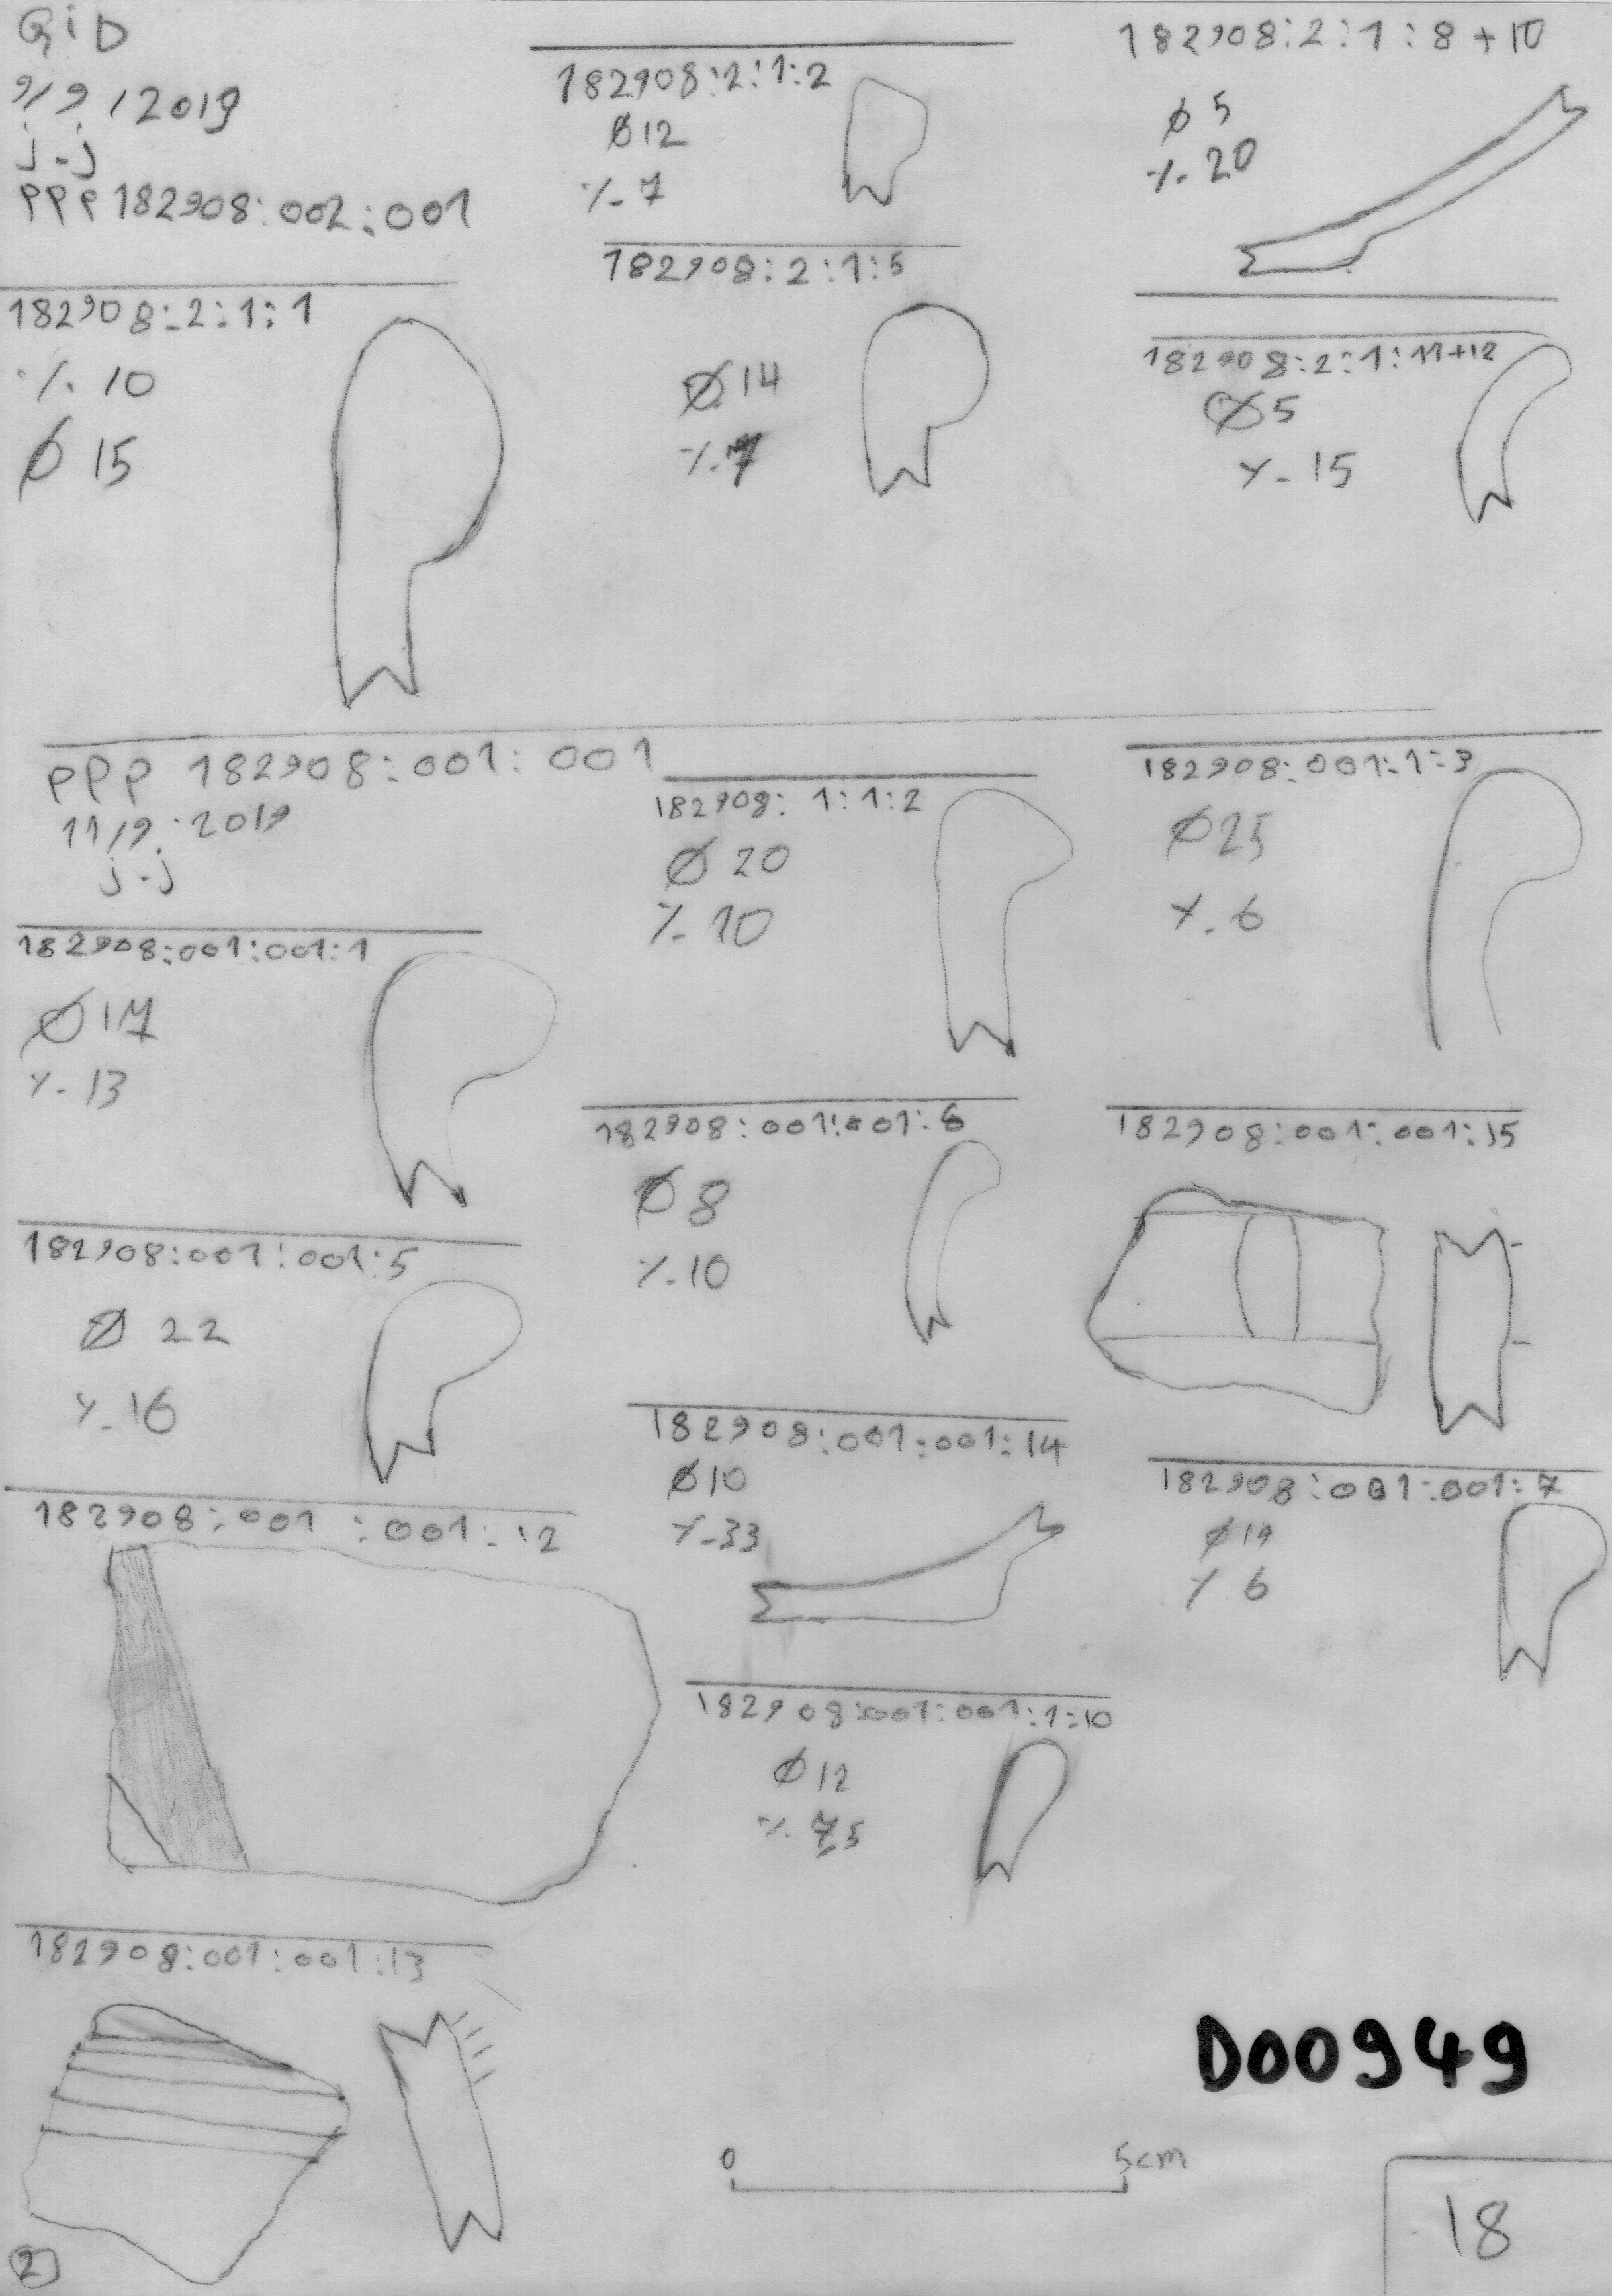 GiD
9/9/2019
j-j
PPP 182908:002:001
182908:2:1:1
%. 10
Ø 15
182908:2:1:2
Ø12
%. 7
182908:2:1:5
Ø 14
%. 7
182908:2:1:8+10
Ø 5
%. 20
182908:2:1:11+12
Ø5
%. 15
PPP 182908:001:001
11/9.2019
j-j
182908:001:001:1
Ø17
%. 13
182908:001:001:5
Ø 22
%. 16
182908:001:001:12
182908:001:001:13
182908:1:1:2
Ø 20
%. 10
182908:001:001:6
Ø 8
%. 10
182908:001:001:14
Ø10
%. 33
182908:001:001:1:10
Ø12
%. 75
182908:001:1:3
Ø25
%. 6
182908:001:001:15
182908:001:001:7
Ø19
% 6
D00949
0 5cm
18
2